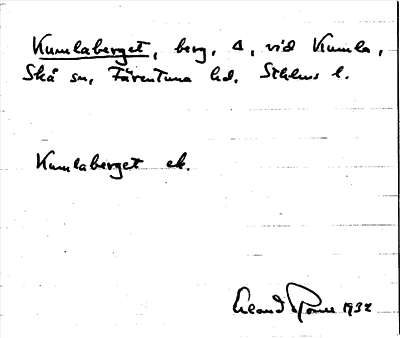 Kumlaberget, berg, Δ, vid Kumla,
Skå sn, Färentuna hd. Sthlms l.
Kumlaberget ek.
Erland Rosell 1932